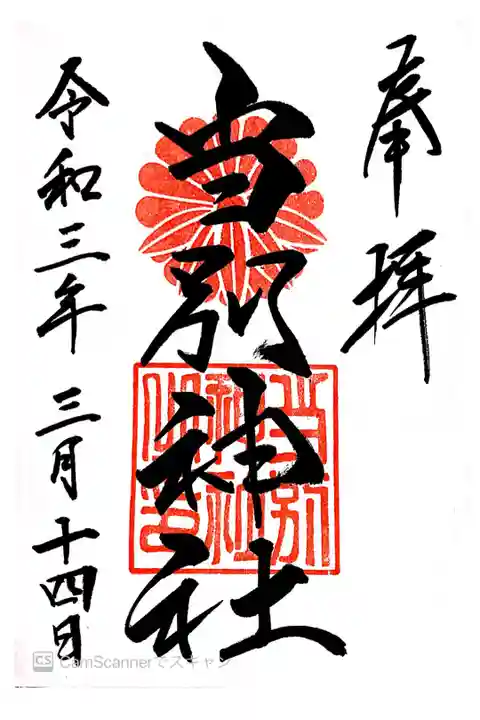 奉拝
当別神社
当別
神社
令和三年 三月十四日
CS CamScannerでスキャン